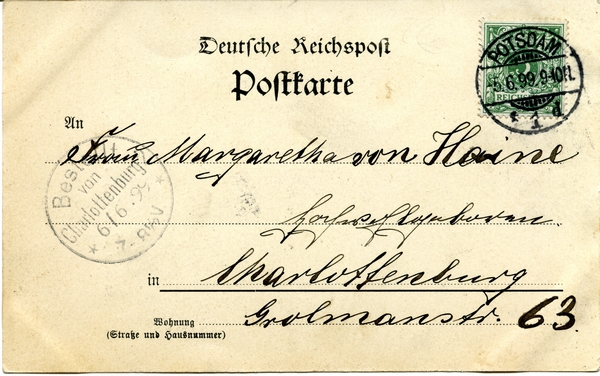 Deutsche Reichspost
Postkarte
POTSDAM
5.6.99.9-10N.
* 1 d
An
Frau Margaretha von Haine
Bestellt
von
Charlottenburg
6/6.99
7- 8½V
hochwohlgeboren
in Charlottenburg
Wohnung Grolmanstr. 63.
(Straße und Hausnummer)